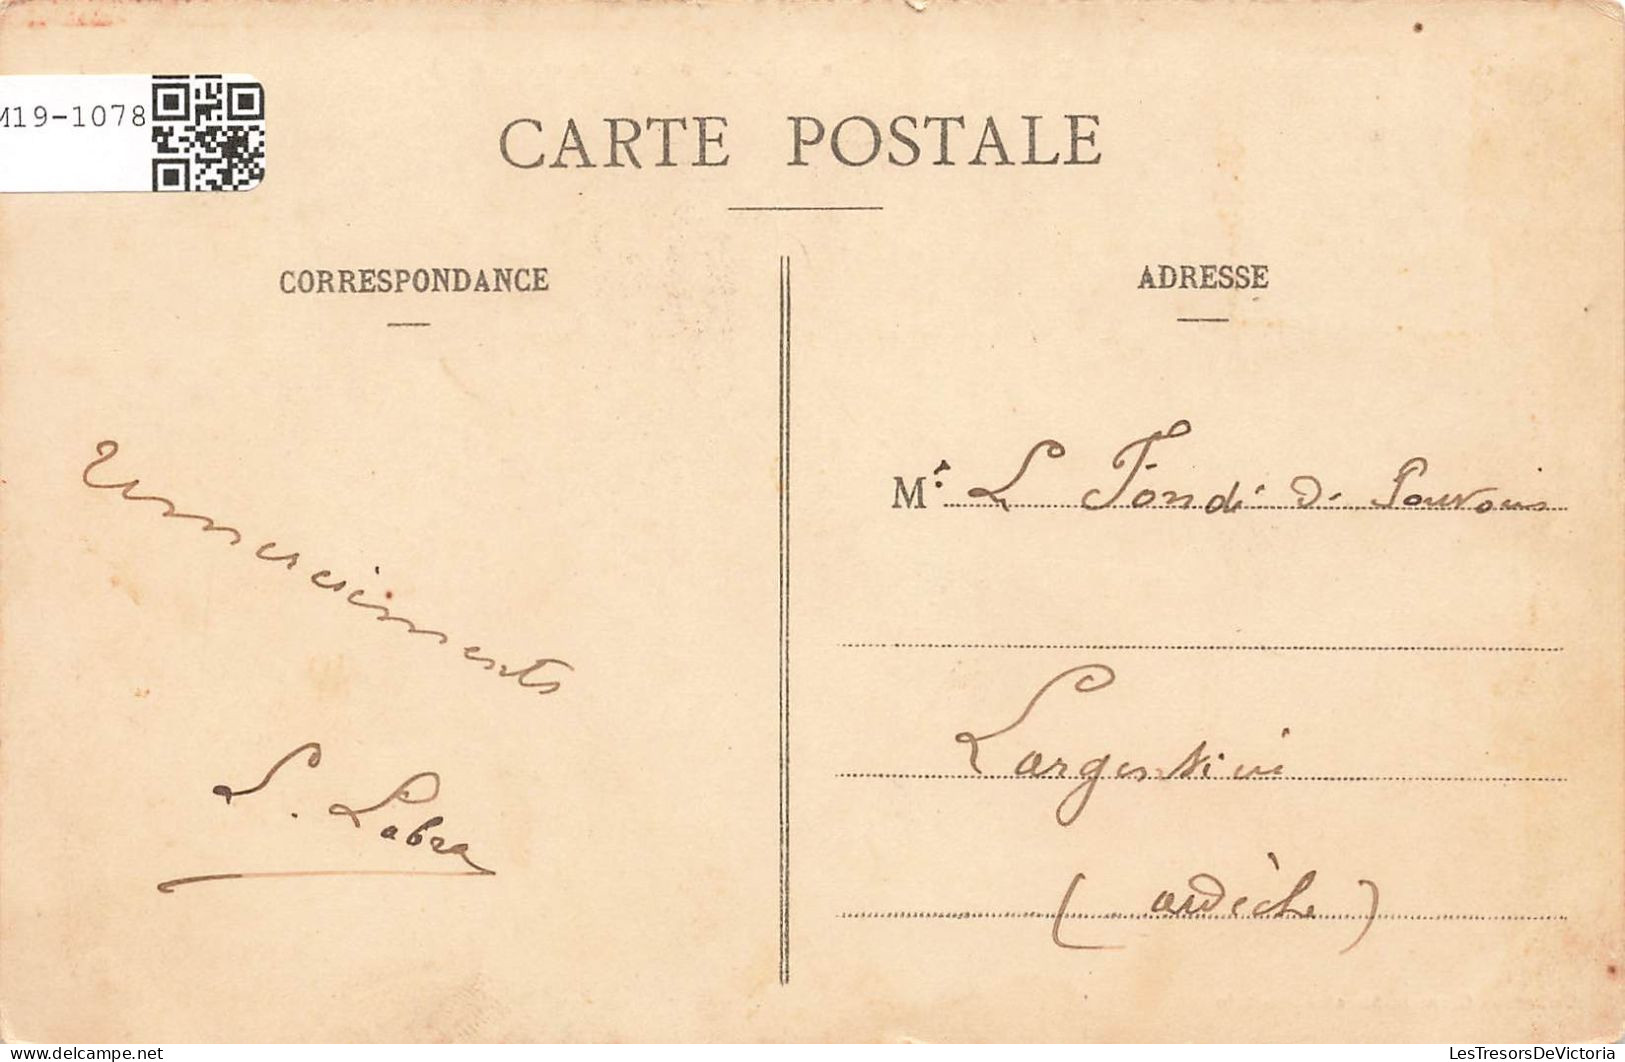 M19-1078
CARTE POSTALE
CORRESPONDANCE
ADRESSE
Mr. L Fondé De Pouvoir
remerciements
Largentière
L. Labra
(ardèche)
delcampe.net
LesTresorsDeVictoria